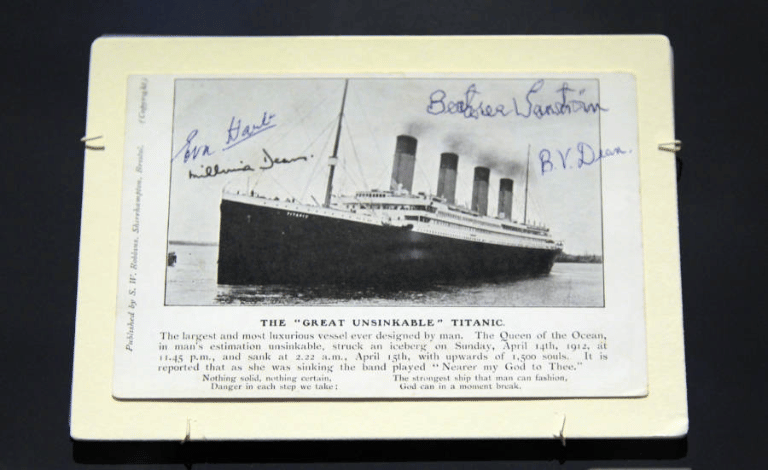 Published by S. W. Robbins, Shirehampton, Bristol. (Copyright)
Eva Hart
Millvina Dean.
B.V. Dean.
TITANIC
THE "GREAT UNSINKABLE" TITANIC.
The largest and most luxurious vessel ever designed by man. The Queen of the Ocean,
in man's estimation unsinkable, struck an iceberg on Sunday, April 14th, 1912, at
11.45 p.m., and sank at 2.22 a.m., April 15th, with upwards of 1,500 souls. It is
reported that as she was sinking the band played "Nearer my God to Thee."
Nothing solid, nothing certain,
Danger in each step we take:
The strongest ship that man can fashion,
God can in a moment break.